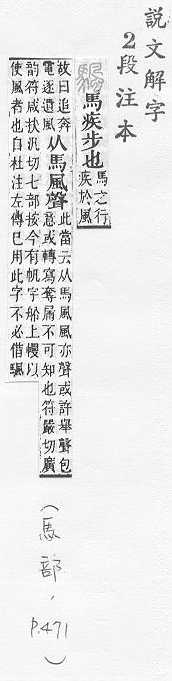 說文解字
2段注本
馬疾步也
馬之行
疾於風
故曰追奔
電逐遺風
从馬風聲
此當云从馬風風亦聲或許舉聲包
意或轉寫奪屚不可知也符嚴切廣
韵符咸扶汎切七部按今有帆字船上幔以
使風者也自杜注左傳已用此字不必借颿
(馬部，P.471)